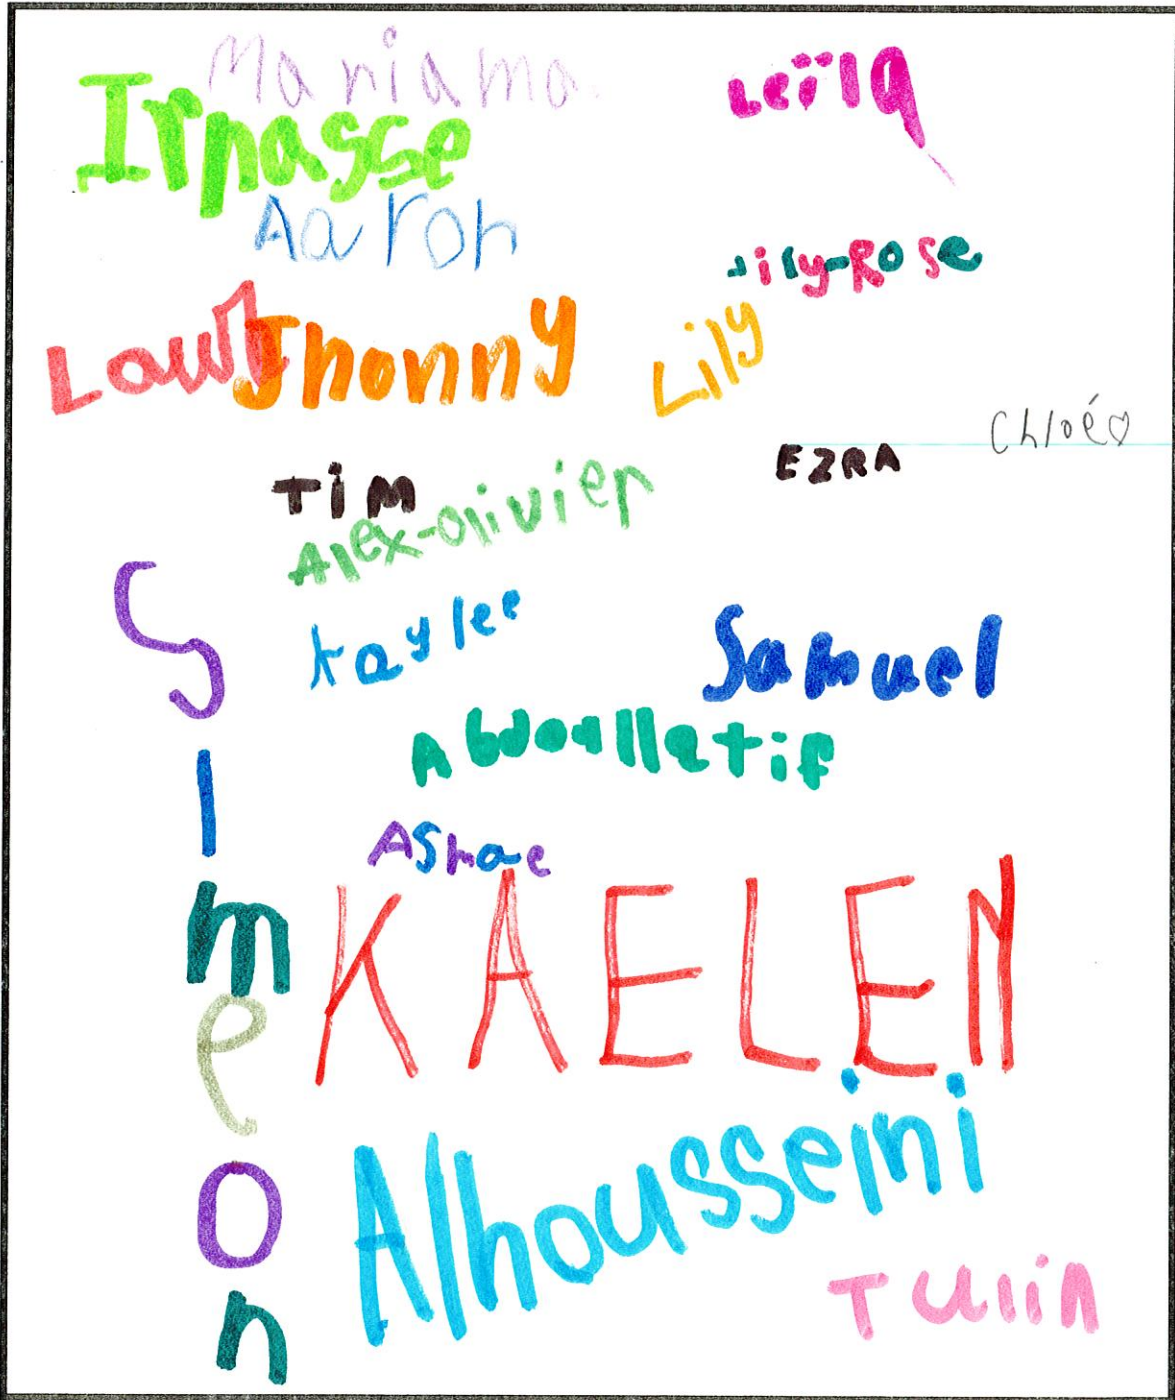 Mariama
Leïla
Irnasse
Aaron
Lily-Rose
Jhonny
Lily
Chloé♡
EZRA
TiM
Alex-olivier
Kaylee
Samuel
Abdoallatif
ASmae
Simeon
KAELEN
Alhousseini
Tulin